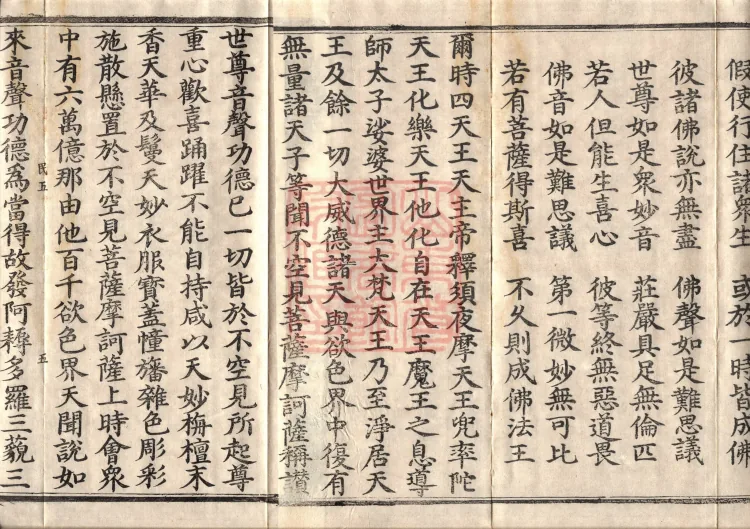 假使行住諸衆生　或於一時皆成佛
彼諸佛說亦無盡　佛聲如是難思議
世尊如是衆妙音　莊嚴具足無倫匹
若人但能生喜心　彼等終無惡道畏
佛音如是難思議　第一微妙無可比
若有菩薩得斯喜　不久則成佛法王
爾時四天王天主帝釋須夜摩天王兜率陀
天王化樂天王他化自在天王魔王之息導
師太子娑婆世界主大梵天王乃至淨居天
王及餘一切大威德諸天與欲色界中復有
無量諸天子等聞不空見菩薩摩訶薩稱讃
世尊音聲功德已一切皆於不空見所起尊
重心歡喜踊躍不能自持咸以天妙栴檀末
香天華及鬘天妙衣服寶蓋幢旛雜色彫彩
施散懸置於不空見菩薩摩訶薩上時會衆
中有六萬億那由他百千欲色界天聞說如
民五　五
來音聲功德為當得故發阿耨多羅三藐三